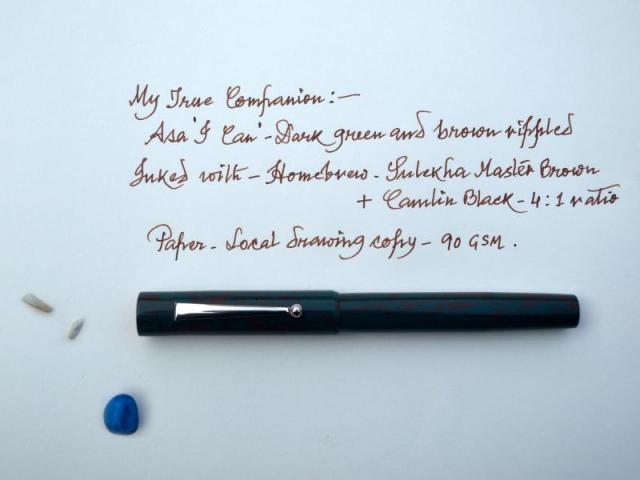 My True Companion :—
Asa 'I Can' - Dark green and brown rippled
Inked with - Homebrew - Sulekha Master Brown
+ Camlin Black - 4:1 ratio
Paper - Local drawing copy - 90 GSM .